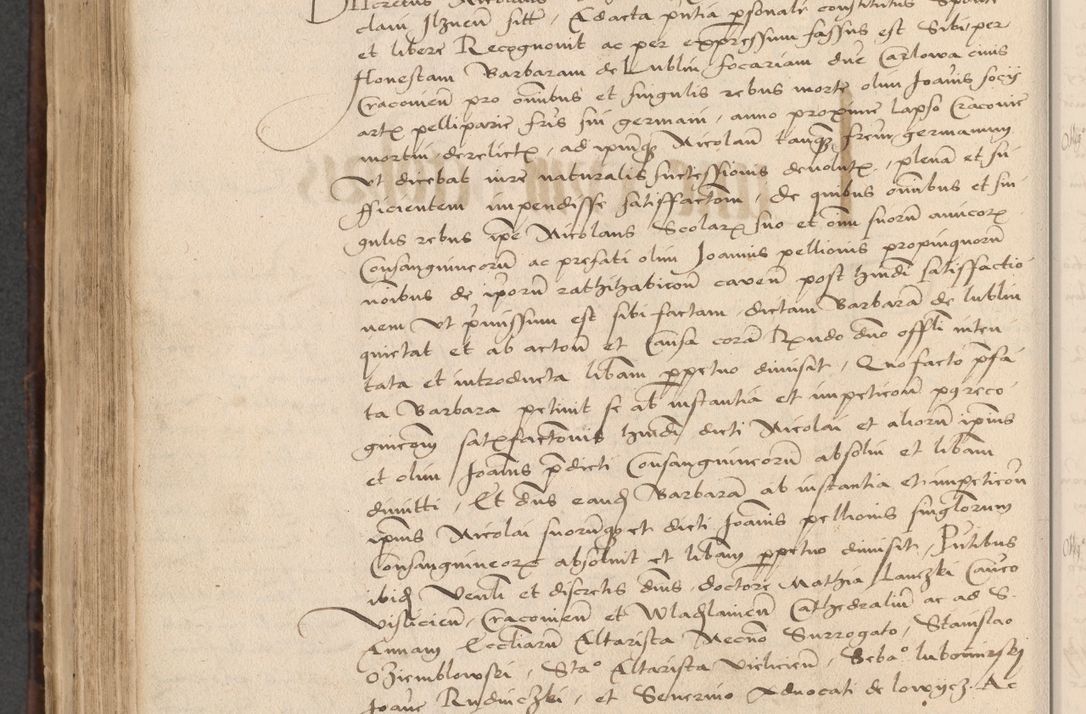 dlam Ilznen̄ sitt̄, Ad acta pn̄tia personalr̄ constitutus sponte
et libere Recognouit ac per expressum fassus est Sibi per
Honestam Barbaram de Lublin focariam dn̄e Carlowa ciuis
Cracouien̄ pro om̄ibus et singulis rebus morte olim Joan̄is socij
artꝭ pelliparie fr̄is sui germani, anno proxime lapso Cracouie
mortui derelictꝭ, ad ipm̄qꝫ Nicolaū tanqꝫ frēm germanum
Ut dicebat iure naturalis successionis deuolutꝭ, plenā et su
fficientem impendisse satisfactōm, de quibus om̄ibus et sin
gulis rebus ip̄e Nicolaus Scolarꝭ suo et om̄ suorū amicorꝝ
Consanguineorū ac prefati olim Joannis pellionis propinquorū
nōibus de ip̄orū rathihabicōn̄ cauen̄ post hmōi satisfactio
nem ut p̄missum est sibi factam, dictam Barbarā de lublin
quietat et ab actōn̄ et causa corā R̄ndo dn̄o offl̄i inten
tata et introducta lib̄am ꝑpetuo dimisit, Quo facto p̄fa
ta Barbara petiuit se ab instantia et impeticōn̄
satꝭfactōnis hmōi dicti Nicolai et aliorū ip̄ius
et olim Joan̄is p̄dicti Consanguineorū absolui et lib̄am
dimitti, Et dn̄s eandꝫ Barbarā ab instantia et impeticōn̄
ip̄ius Nicolai suorūqꝫ et dicti Joan̄is pellionis singlorum
Consanguineorꝝ absoluit et lib̄am ꝑpetuo dimisit, Pn̄tibus
ibidꝫ Ven̄li et discretis dn̄is, doctore Mathia Lanczki Can̄co
Visliciēn, Cracouien̄ et Wladslauien̄ Cathedraliū ac ad S.
Annam Eccl̄iarū Altarista Necn̄o Surrogato, Stanislao
Oziemblowski, Sta° Altarista Vieliciēn, Seba° lubomirski
Joan̄e Rudniczki, et Seuerino Aduocati de lowycz. Ac